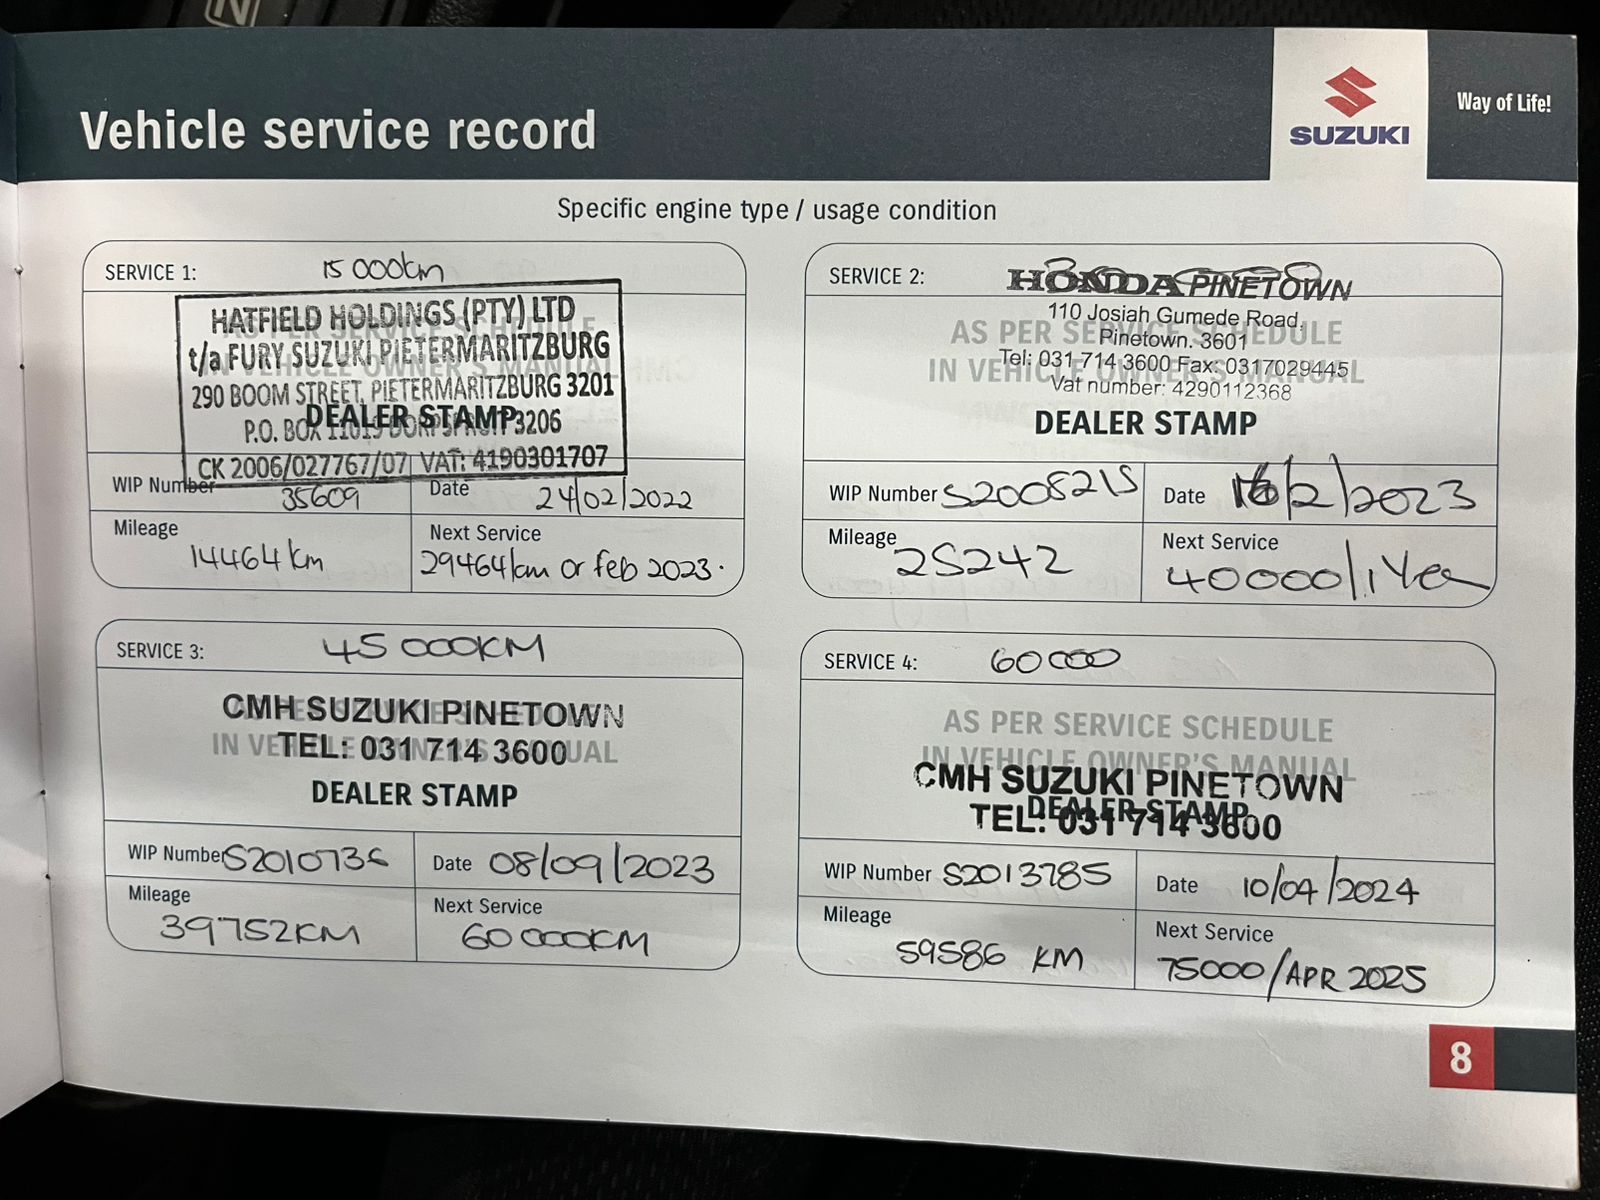 N
Vehicle service record
SUZUKI
Way of Life!
Specific engine type / usage condition
SERVICE 1: 15 000km
HATFIELD HOLDINGS (PTY) LTD
t/a FURY SUZUKI PIETERMARITZBURG
290 BOOM STREET, PIETERMARITZBURG 3201
P.O. BOX 11019 DORPSPRUIT 3206
DEALER STAMP
CK 2006/027767/07 VAT: 4190301707
WIP Number 35609
Date 24/02/2022
Mileage 14464km
Next Service 29464km or feb 2023.
SERVICE 2:
HONDA PINETOWN
110 Josiah Gumede Road,
Pinetown. 3601
Tel: 031 714 3600 Fax: 0317029445
Vat number: 4290112368
AS PER SERVICE SCHEDULE
IN VEHICLE OWNER'S MANUAL
DEALER STAMP
WIP Number S2008215
Date 16/2/2023
Mileage 25242
Next Service 40000/1 Year
SERVICE 3: 45 000KM
CMH SUZUKI PINETOWN
TEL: 031 714 3600
DEALER STAMP
WIP Number S2010736
Date 08/09/2023
Mileage 39752KM
Next Service 60 000KM
SERVICE 4: 60000
AS PER SERVICE SCHEDULE
IN VEHICLE OWNER'S MANUAL
CMH SUZUKI PINETOWN
DEALER STAMP
TEL: 031 714 3600
WIP Number S2013785
Date 10/04/2024
Mileage 59586 KM
Next Service 75000/APR 2025
8